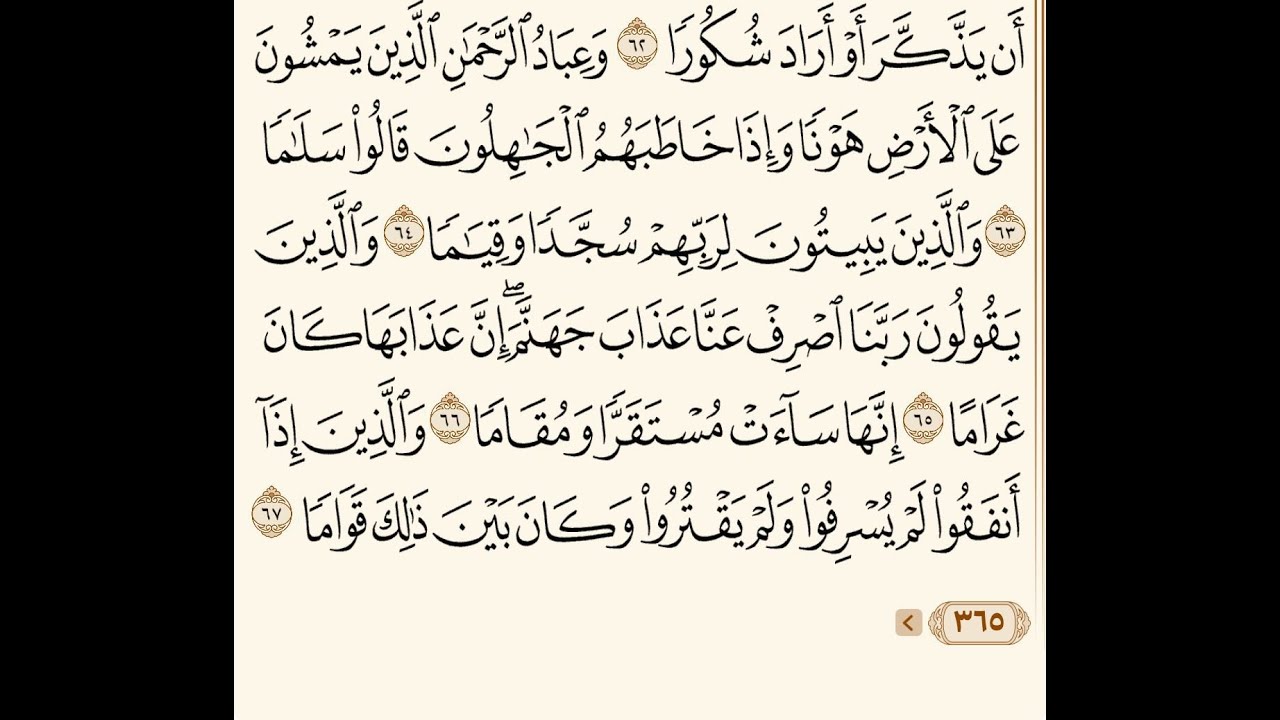 أَن يَذَّكَّرَ أَوْ أَرَادَ شُكُورًا ٦٢ وَعِبَادُ ٱلرَّحْمَٰنِ ٱلَّذِينَ يَمْشُونَ
عَلَى ٱلْأَرْضِ هَوْنًا وَإِذَا خَاطَبَهُمُ ٱلْجَٰهِلُونَ قَالُوا۟ سَلَٰمًا
٦٣ وَٱلَّذِينَ يَبِيتُونَ لِرَبِّهِمْ سُجَّدًا وَقِيَٰمًا ٦٤ وَٱلَّذِينَ
يَقُولُونَ رَبَّنَا ٱصْرِفْ عَنَّا عَذَابَ جَهَنَّمَ ۖ إِنَّ عَذَابَهَا كَانَ
غَرَامًا ٦٥ إِنَّهَا سَآءَتْ مُسْتَقَرًّا وَمُقَامًا ٦٦ وَٱلَّذِينَ إِذَآ
أَنفَقُوا۟ لَمْ يُسْرِفُوا۟ وَلَمْ يَقْتُرُوا۟ وَكَانَ بَيْنَ ذَٰلِكَ قَوَامًا ٦٧
٣٦٥ <